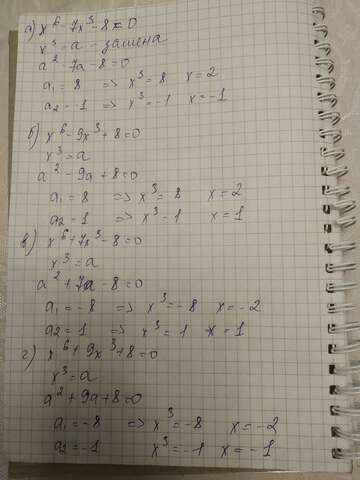 а) x⁶-7x³-8=0
x³=a - замена
a²-7a-8=0
a₁=8 => x³=8 x=2
a₂=-1 => x³=-1 x=-1
б) x⁶-9x³+8=0
x³=a
a²-9a+8=0
a₁=8 => x³=8 x=2
a₂=1 => x³=1 x=1
в) x⁶+7x³-8=0
x³=a
a²+7a-8=0
a₁=-8 => x³=-8 x=-2
a₂=1 => x³=1 x=1
г) x⁶+9x³+8=0
x³=a
a²+9a+8=0
a₁=-8 => x³=-8 x=-2
a₂=-1 x³=-1 x=-1